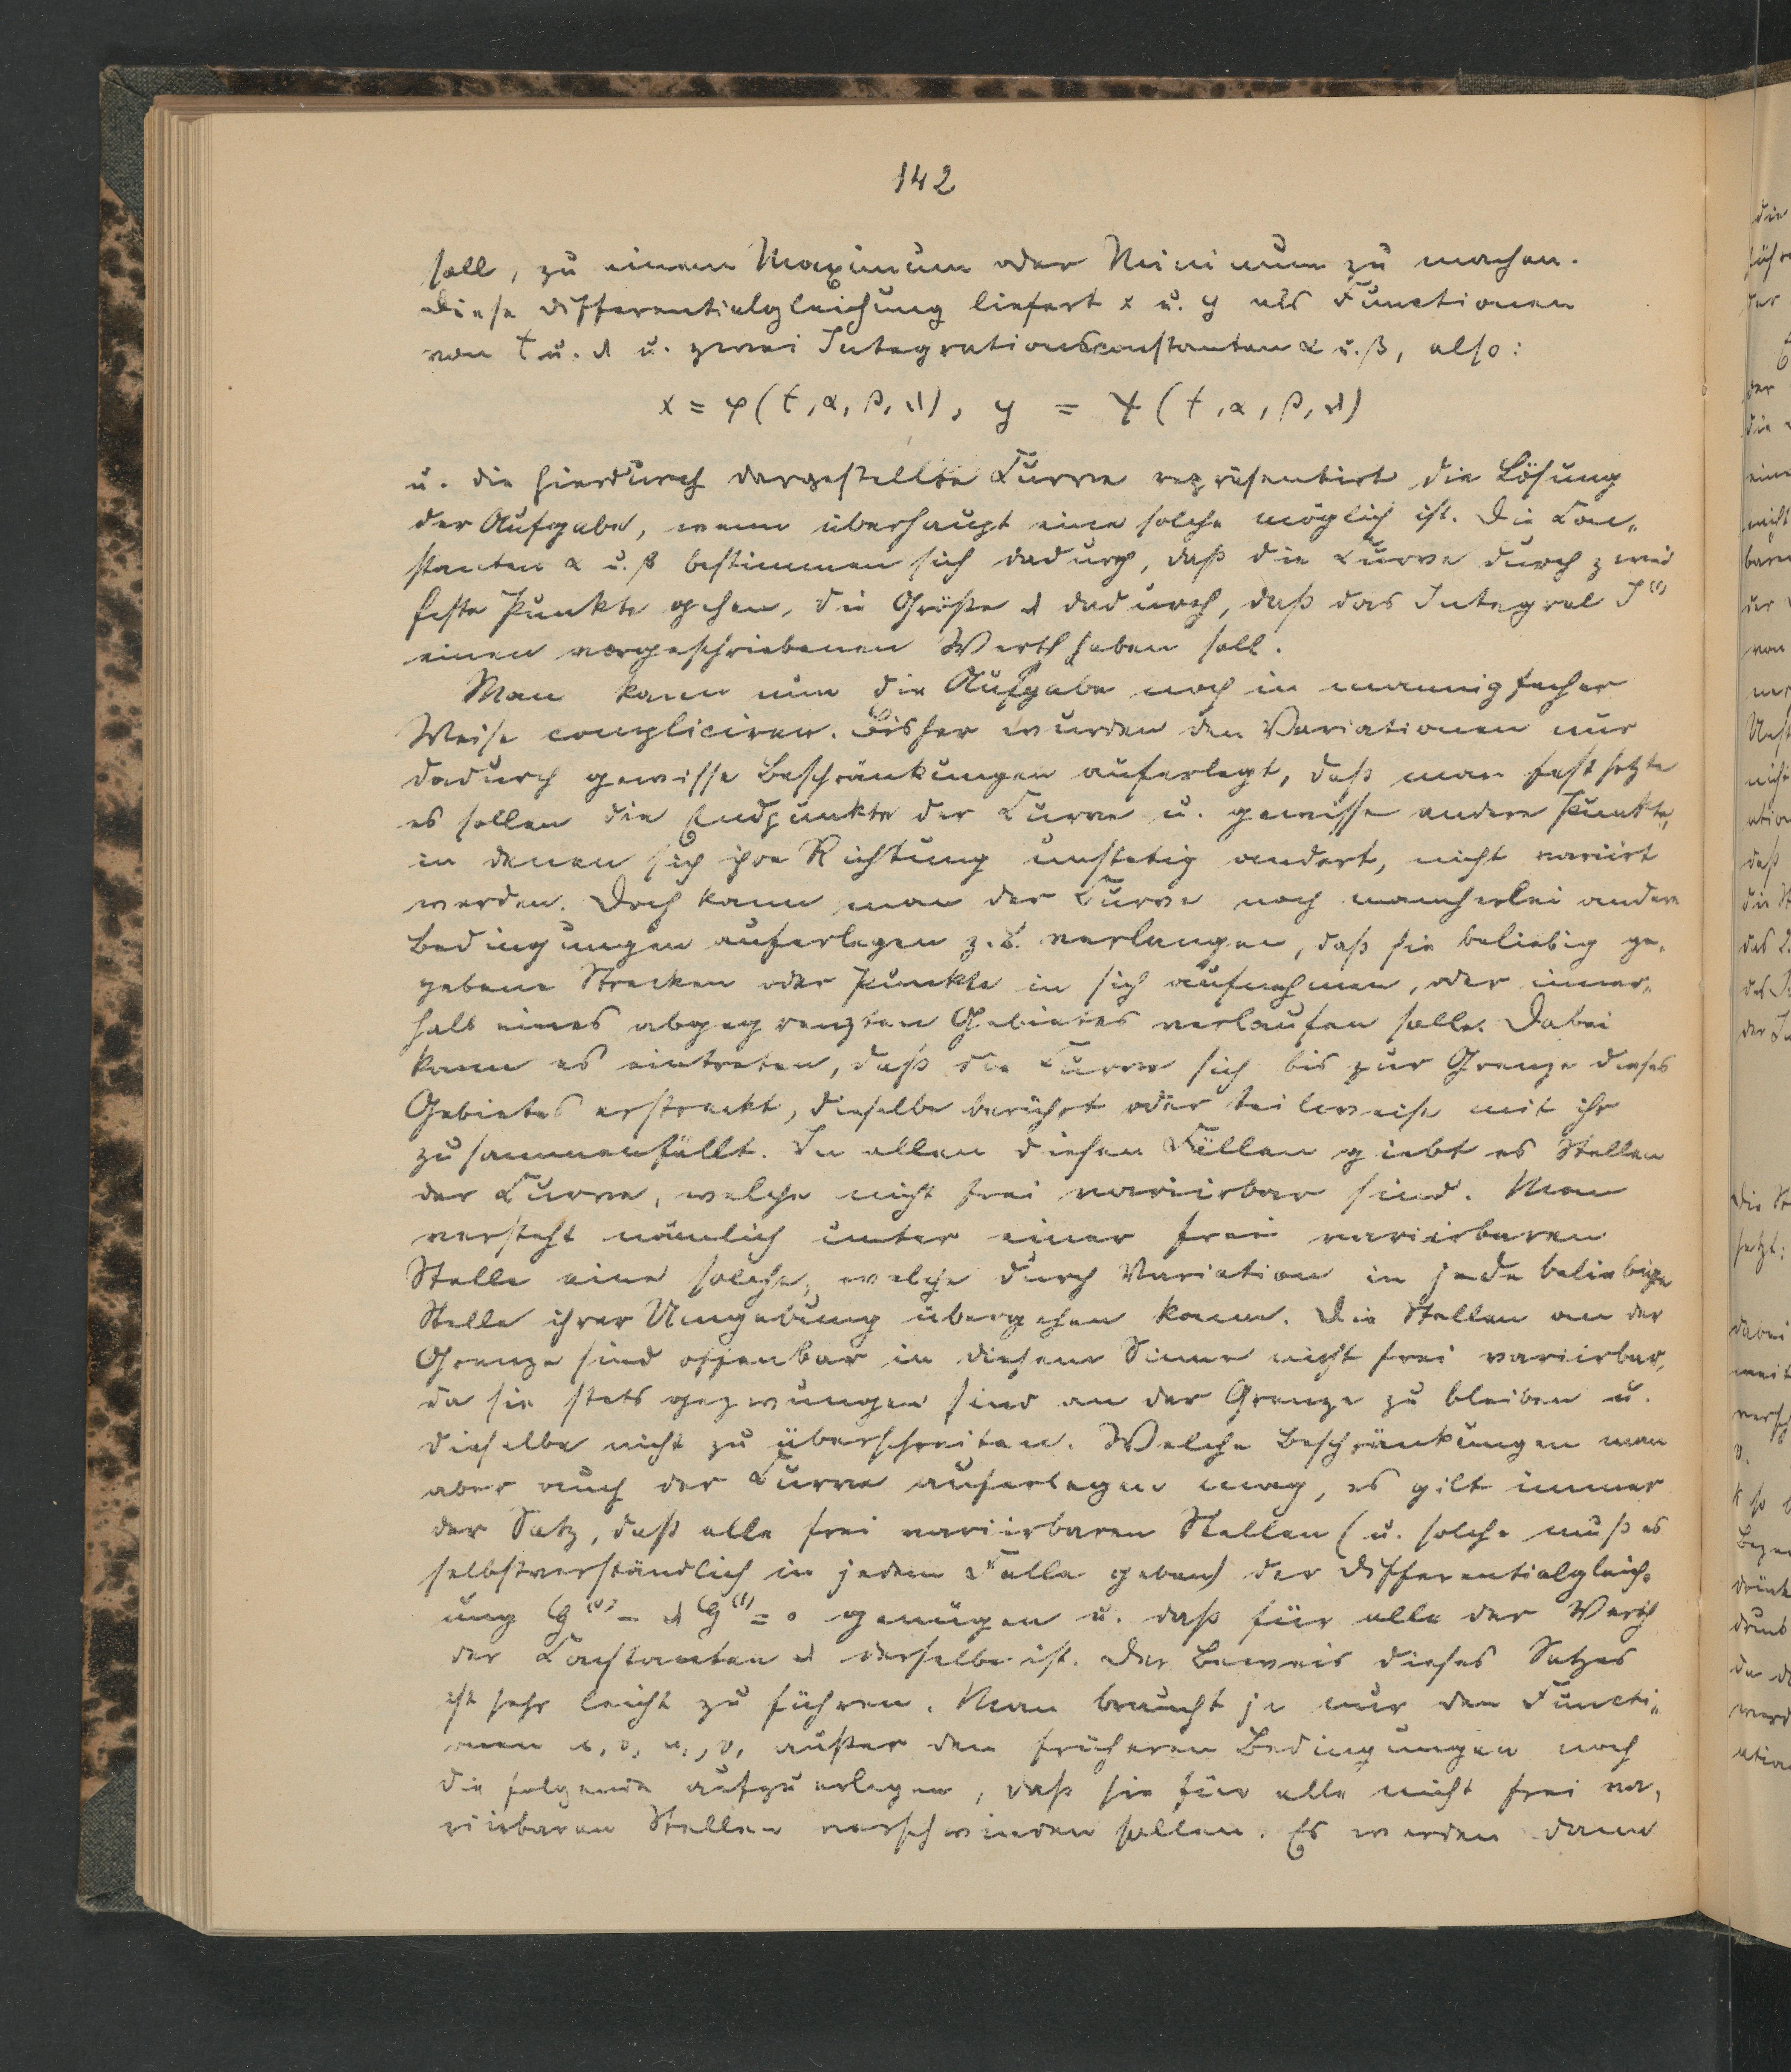 142
soll, zu einem Maximum oder Minimum zu machen.
Diese Differentialgleichung liefert x u. y als Functionen
von t u. λ u. zwei Integrationsconstanten α u. β, also:
x = φ(t, α, β, λ), y = ψ(t, α, β, λ)
u. die hierdurch dargestellte Curve repräsentirt die Lösung
der Aufgabe, wenn überhaupt eine solche möglich ist. Die Con-
stanten α u. β bestimmen sich dadurch, daß die Curve durch zwei
feste Punkte gehen, die Größe λ dadurch, daß das Integral J⁽¹⁾
einen vorgeschriebenen Werth haben soll.
Man kann nun die Aufgabe noch in mannigfacher
Weise compliciren. Bisher wurden den Variationen nur
dadurch gewisse Beschränkungen auferlegt, daß man festsetzte
es sollen die Endpunkte der Curve u. gewisse andere Punkte,
in denen sich ihre Richtung unstetig andert, nicht variirt
werden. Doch kann man der Curve noch mancherlei andere
Bedingungen auferlegen z.B. verlangen, daß sie beliebig ge-
gebene Strecken oder Punkte in sich aufnehmen, oder inner-
halb eines abgegrenzten Gebietes verlaufen solle. Dabei
kann es eintreten, daß die Curve sich bis zur Grenze dieses
Gebietes erstreckt, dieselbe berührt oder teilweise mit ihr
zusammenfällt. In allen diesen Fällen giebt es Stellen
der Curve, welche nicht frei variirbar sind. Man
versteht nämlich unter einer frei variirbaren
Stelle eine solche, welche durch Variation in jede beliebige
Stelle ihrer Umgebung übergehen kann. Die Stellen an der
Grenze sind offenbar in diesem Sinne nicht frei variirbar,
da sie stets gezwungen sind an der Grenze zu bleiben u.
dieselbe nicht zu überschreiten. Welche Beschränkungen man
aber auch der Curve auferlegen mag, es gilt immer
der Satz, daß alle frei variirbaren Stellen (u. solche muß es
selbstverständlich in jedem Falle geben) der Differentialgleich-
ung G⁽⁰⁾ - λ G⁽¹⁾ = 0 genügen u. daß für alle der Werth
der Constanten λ derselbe ist. Der Beweis dieses Satzes
ist sehr leicht zu führen. Man braucht ja nur den Functi-
onen u, v, u₁, v₁ außer den früheren Bedingungen noch
die folgende aufzuerlegen, daß sie für alle nicht frei va-
riirbaren Stellen verschwinden sollen. Es werden dann